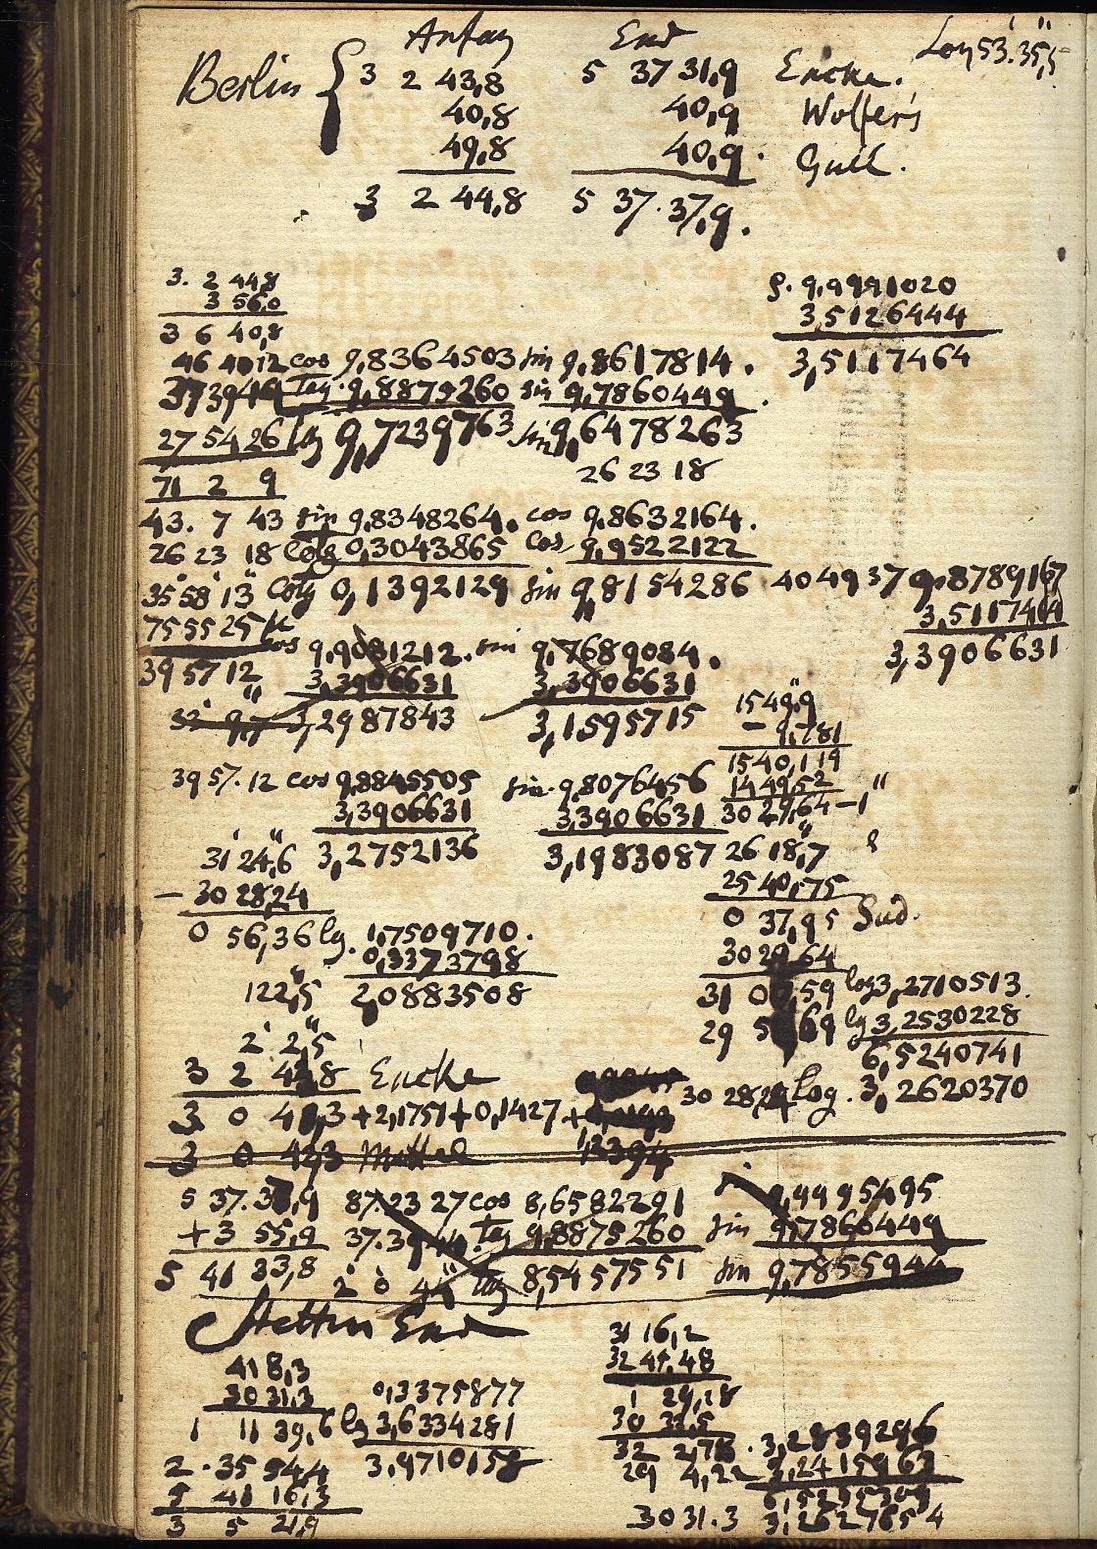 Anfang End Lon 53' 35",5
Berlin { 3 2 43,8 5 37 31,9 Encke.
40,8 40,9 Wolfers
49,8 40,9. Galle.
3 2 44,8 5 37. 37,9.
3. 2 44,8 ρ. 9,9991020
3 56,0 3,5126444
3 6 40,8
46 40 12 cos 9,8364503 sin 9,8617814. 3,5117464
37 39 44 tg. 9,8875260 sin 9,7860449.
27 54 26 tg 9,7239763 sin 9,6478263
71 2 9 26 23 18
43. 7 43 sin 9,8348264. cos 9,8632164.
26 23 18 cotg 0,3043865 cos 9,9522122
35 58 13 cotg 0,1392129 sin 9,8154286 40 49 37 9,8789167
75 55 25 3,5117464
cos 9,9081212. sin 9,7689084. 3,3906631
39 57 12 3,3906631 3,3906631
3,2987843 3,1595715 1549,9
– 9,781
1540,119
39 57. 12 cos 9,8845505 sin. 9,8076456 1489,52
3,3906631 3,3906631 3029,64 – 1"
31' 24",6 3,2752136 3,1983087 26 18,7
– 30 28,24 25 40,75
0 56,36 lg. 1,7509710. 0 37,95 Sud.
0,3373798 30 29,64
122",5 2,0883508 31 07,59 log 3,2710513.
29 51,69 lg 3,2530228
2' 2",5 6,5240741
3 2 43,8 Encke 30 28,24 log. 3,2620370
3 0 41,3 + 2,1751 + 0,1427 +
3 0 42,3 Mittel 1,3394
5 37. 37,9 87. 23 27 cos 8,6582291 9,9995495
+ 3 55,9 37. 39 44. tg 9,8875260 sin 9,7860449
5 41 33,8 2° 0' 4" tg 8,5457551 sin 9,7855944
Stettin End 31 16,2
41 8,3 32 45,48
30 31,3 0,3375877 1 29,28
1 11 39,6 lg 3,6334281 30 33,5
2. 35 54,4 3,9710158 32 2,78. 3,2839286
5 41 16,3 29 4,22 3,2415963
3 5 21,9 30 31.3 3,2627654